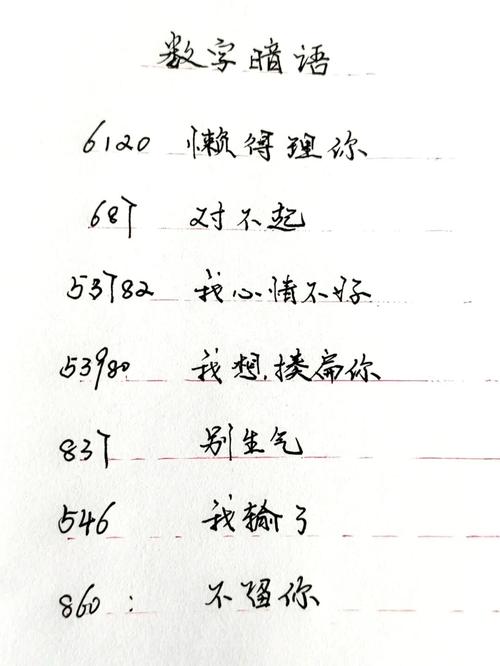 数字暗语
6120 懒得理你
687 对不起
53782 我心情不好
53980 我想揍扁你
837 别生气
546 我输了
860: 不留你